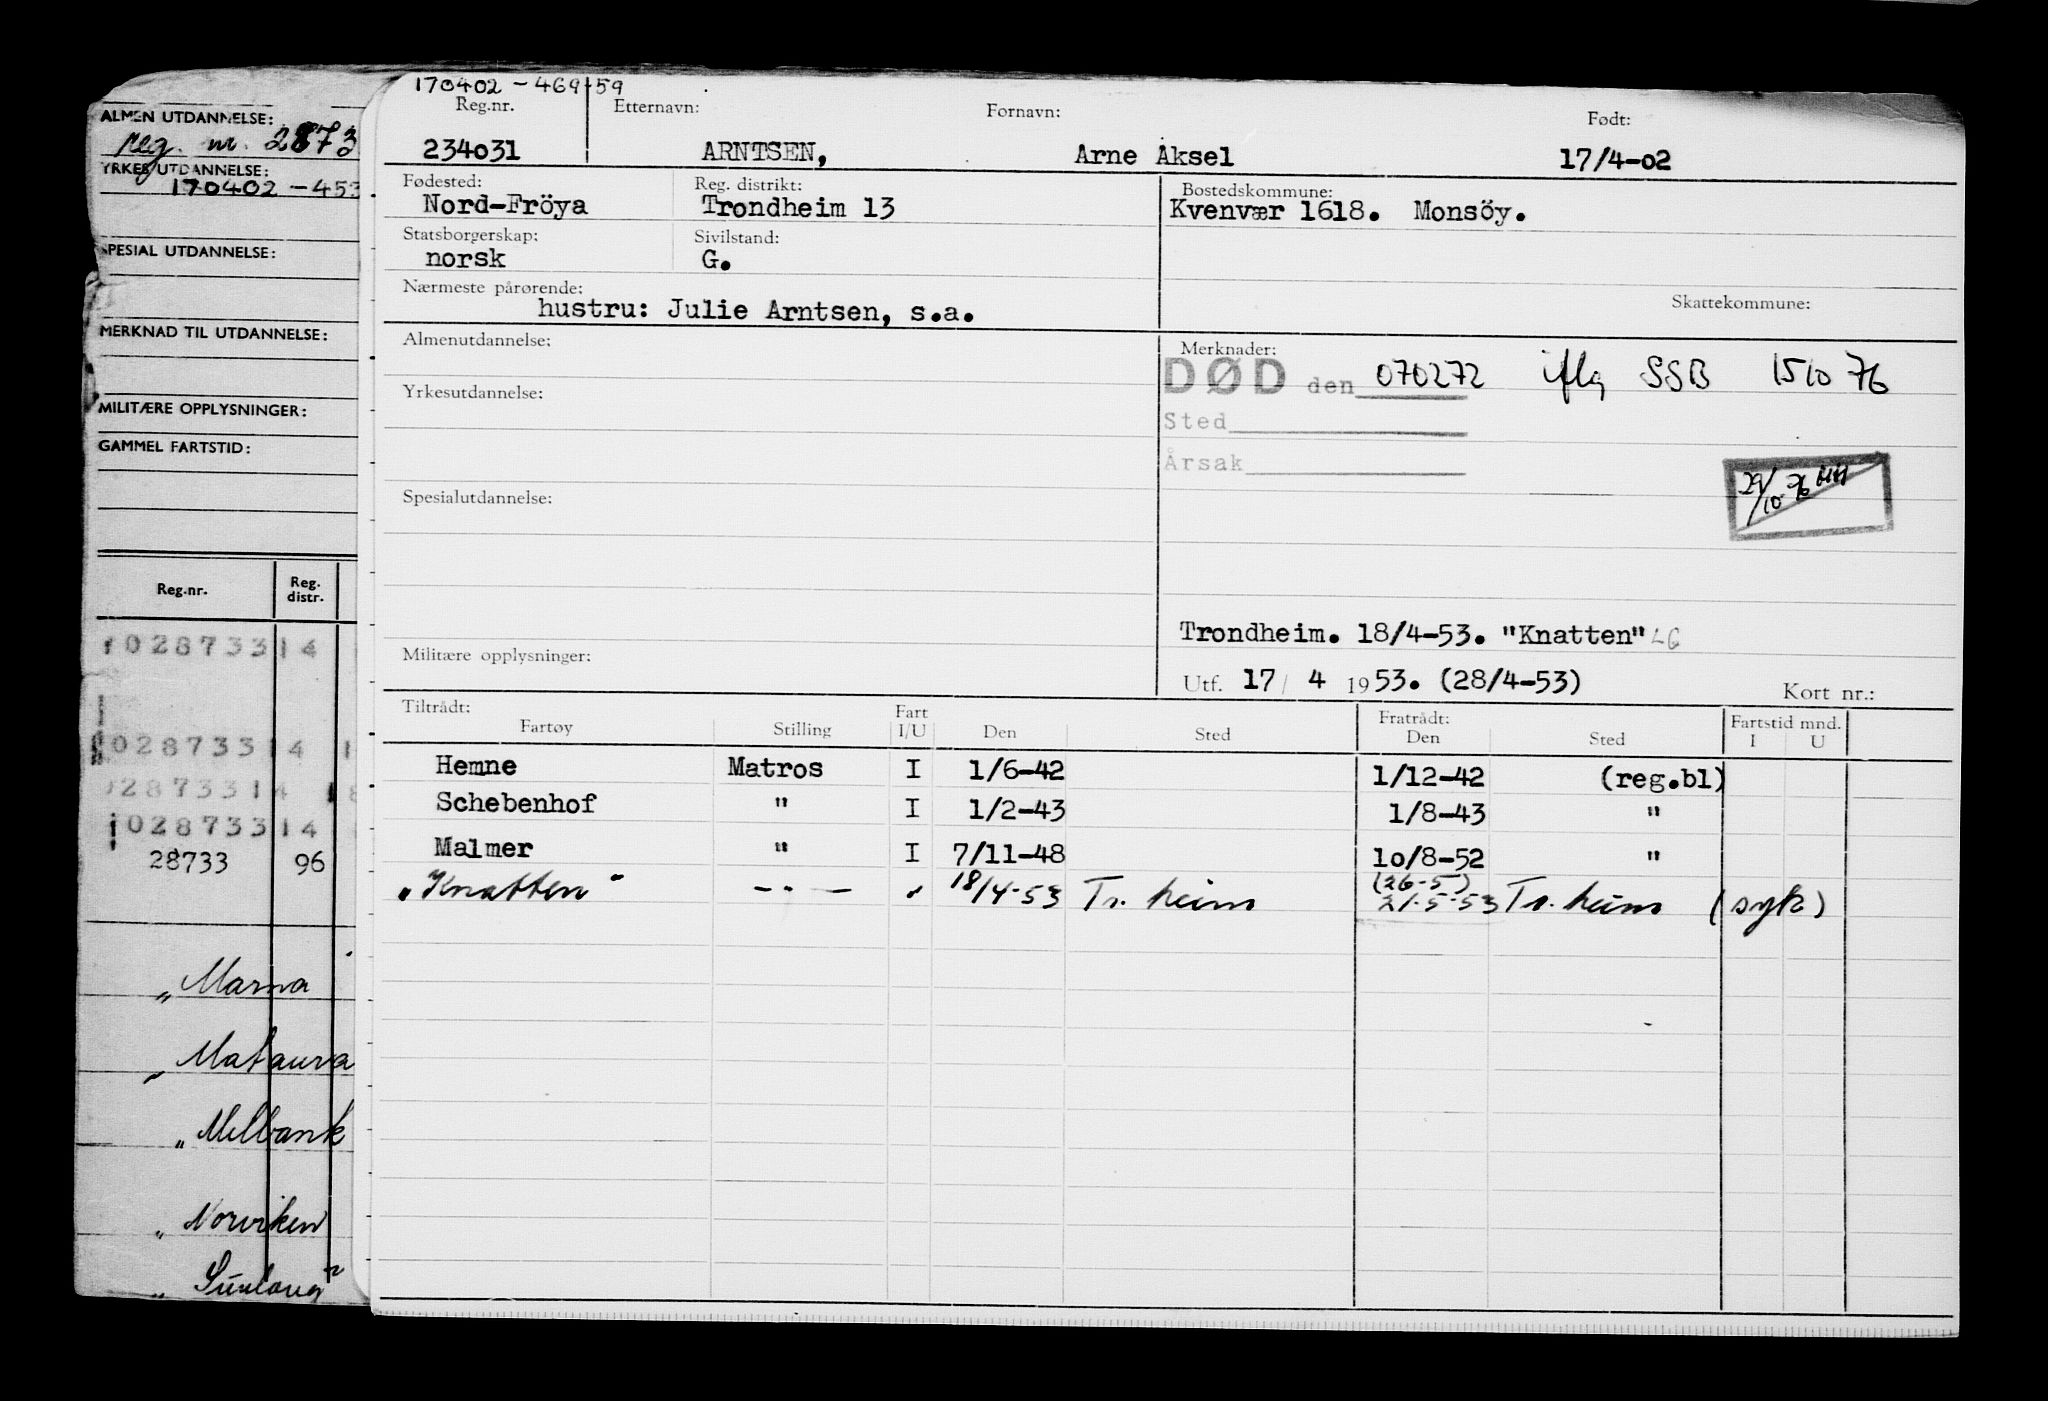 ALMEN UTDANNELSE:
reg. nr. 2873
YRKESUTDANNELSE:
170402 - 453
SPESIAL UTDANNELSE:
MERKNAD TIL UTDANNELSE:
MILITÆRE OPPLYSNINGER:
GAMMEL FARTSTID:
Reg.nr. Reg. distr.
028733 14
028733 14
28733 14
028733 14
28733 96
"Marna
"Mataura
"Melbank
"Norviken
170402 - 469 59
Reg.nr. Etternavn: Fornavn: Født:
234031 ARNTSEN, Arne Aksel 17/4-02
Fødested: Reg. distrikt: Bostedskommune:
Nord-Fröya Trondheim 13 Kvenvær 1618. Monsöy.
Statsborgerskap: Sivilstand:
norsk G.
Nærmeste pårørende: Skattekommune:
hustru: Julie Arntsen, s.a.
Almenutdannelse: Merknader:
DØD den 070272 iflg SSB 151076
Yrkesutdannelse:
Sted
Årsak
29/10-76
Spesialutdannelse:
Trondheim. 18/4-53. "Knatten" LG
Militære opplysninger:
Utf. 17/ 4 1953. (28/4-53) Kort nr.:
Tiltrådt: Fratrådt: Fartstid mnd.
Fartøy Stilling Fart I/U Den Sted Den Sted I U
Hemne Matros I 1/6-42 1/12-42 (reg.bl)
Schebenhof " I 1/2-43 1/8-43 "
Malmer " I 7/11-48 10/8-52 "
(26-5)
"Knatten" -"- " 18/4-53 Tr.heim 21-5-53 Tr.heim (syk)